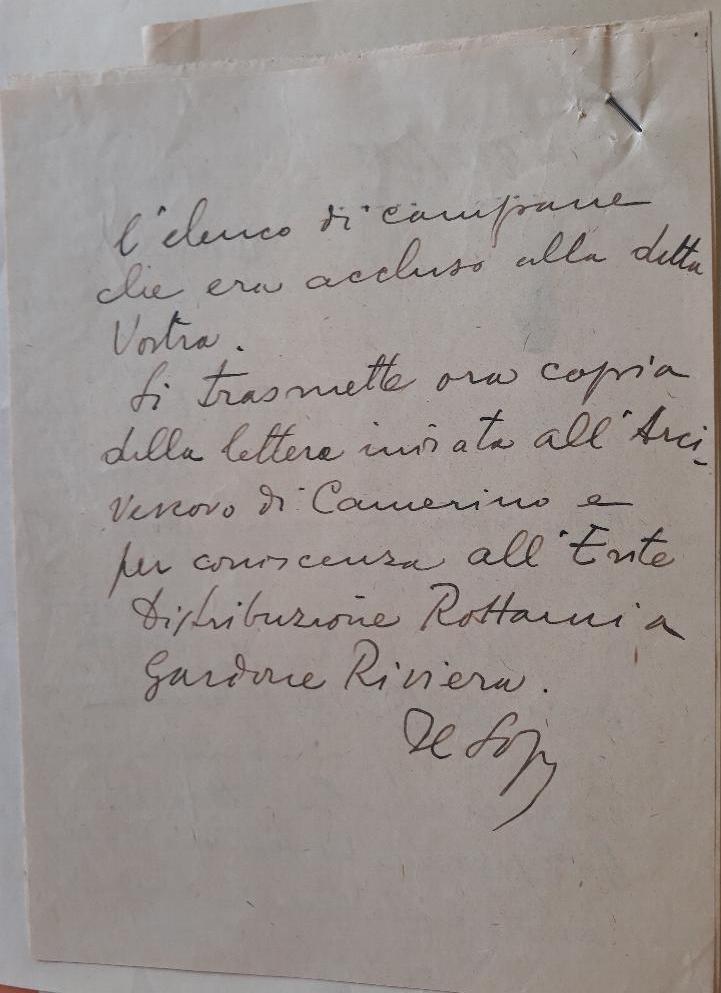 l'elenco di campane
che era accluso alla detta
Vostra.
Si trasmette ora copia
della lettera inviata all'Arci-
vescovo di Camerino e
per conoscenza all'Ente
Distribuzione Rottami a
Gardone Riviera.
Il Sop